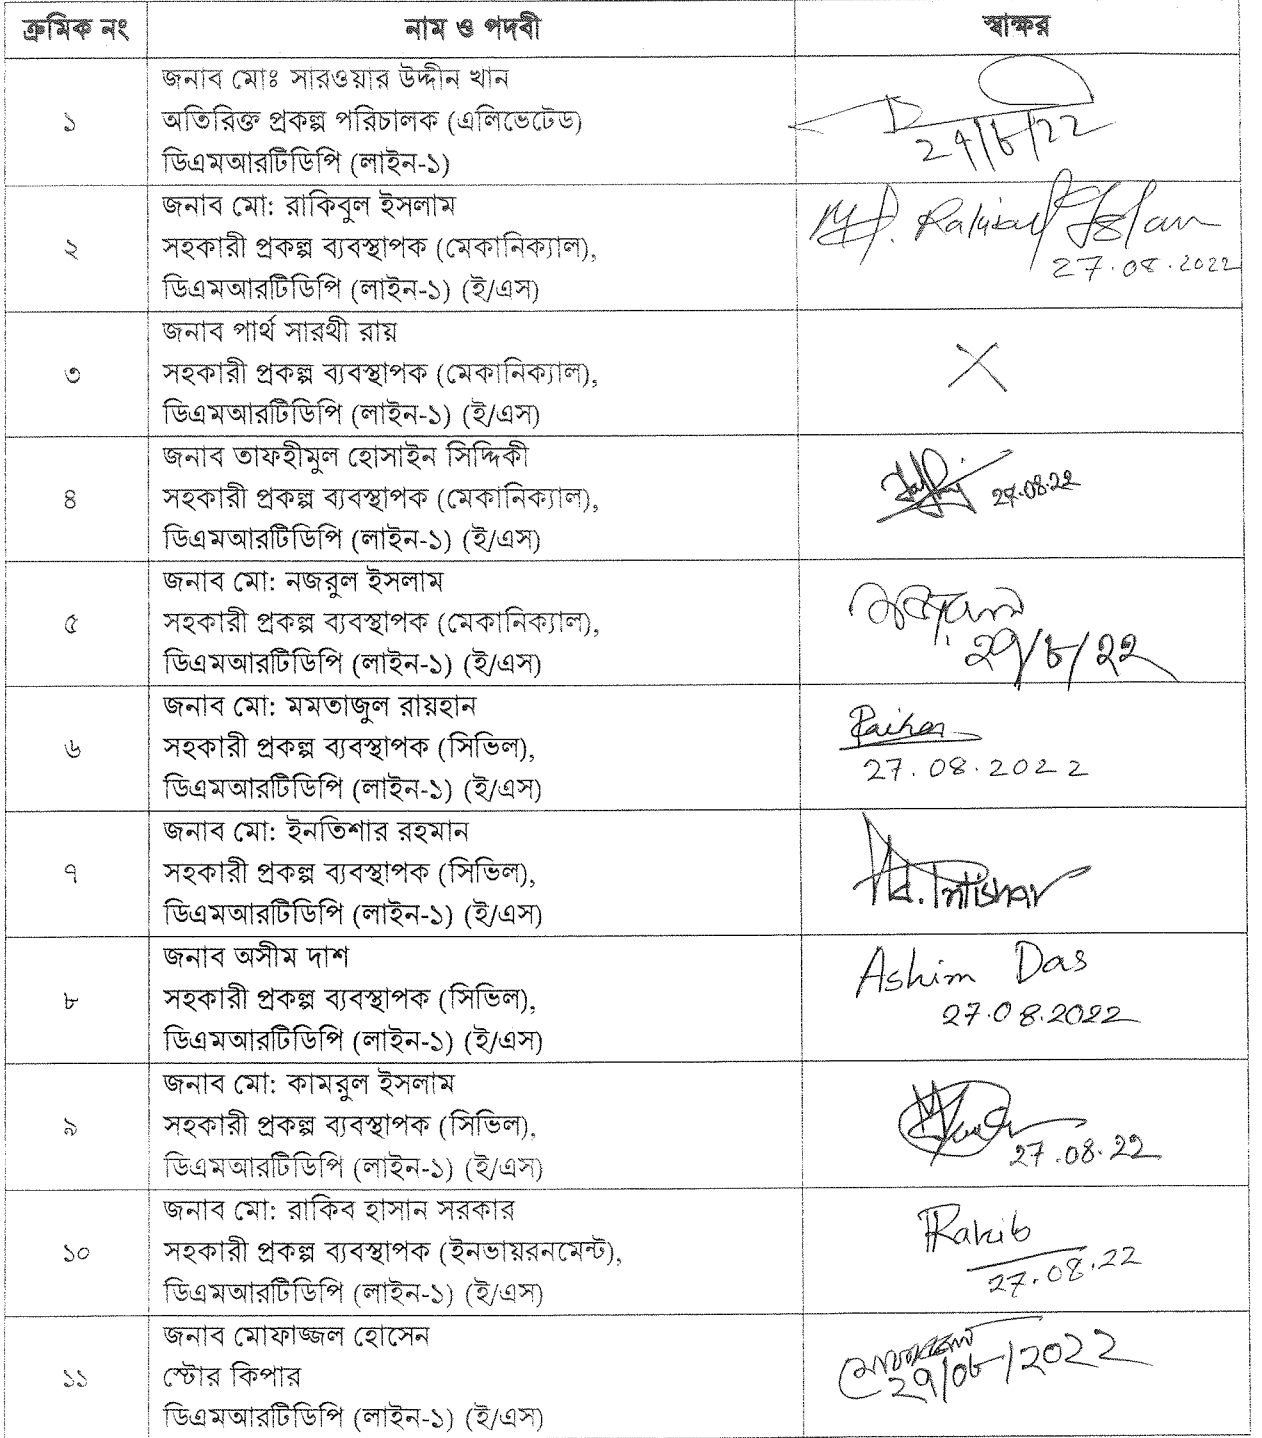 ক্রমিক নং নাম ও পদবী স্বাক্ষর
১
জনাব মোঃ সারওয়ার উদ্দীন খান
অতিরিক্ত প্রকল্প পরিচালক (এলিভেটেড)
ডিএমআরটিডিপি (লাইন-১)
২৭/৮/২২
২
জনাব মো: রাকিবুল ইসলাম
সহকারী প্রকল্প ব্যবস্থাপক (মেকানিক্যাল),
ডিএমআরটিডিপি (লাইন-১) (ই/এস)
Md. Rakibul Islam
27.08.2022
৩
জনাব পার্থ সারথী রায়
সহকারী প্রকল্প ব্যবস্থাপক (মেকানিক্যাল),
ডিএমআরটিডিপি (লাইন-১) (ই/এস)
৪
জনাব তাফহীমুল হোসাইন সিদ্দিকী
সহকারী প্রকল্প ব্যবস্থাপক (মেকানিক্যাল),
ডিএমআরটিডিপি (লাইন-১) (ই/এস)
27.08.22
৫
জনাব মো: নজরুল ইসলাম
সহকারী প্রকল্প ব্যবস্থাপক (মেকানিক্যাল),
ডিএমআরটিডিপি (লাইন-১) (ই/এস)
২৭/৮/২২
৬
জনাব মো: মমতাজুল রায়হান
সহকারী প্রকল্প ব্যবস্থাপক (সিভিল),
ডিএমআরটিডিপি (লাইন-১) (ই/এস)
Raihan
27.08.2022
৭
জনাব মো: ইনতিশার রহমান
সহকারী প্রকল্প ব্যবস্থাপক (সিভিল),
ডিএমআরটিডিপি (লাইন-১) (ই/এস)
Md. Intishar
৮
জনাব অসীম দাশ
সহকারী প্রকল্প ব্যবস্থাপক (সিভিল),
ডিএমআরটিডিপি (লাইন-১) (ই/এস)
Ashim Das
27.08.2022
৯
জনাব মো: কামরুল ইসলাম
সহকারী প্রকল্প ব্যবস্থাপক (সিভিল),
ডিএমআরটিডিপি (লাইন-১) (ই/এস)
27.08.22
১০
জনাব মো: রাকিব হাসান সরকার
সহকারী প্রকল্প ব্যবস্থাপক (ইনভায়রনমেন্ট),
ডিএমআরটিডিপি (লাইন-১) (ই/এস)
Rakib
27.08.22
১১
জনাব মোফাজ্জল হোসেন
স্টোর কিপার
ডিএমআরটিডিপি (লাইন-১) (ই/এস)
২৭/০৮/২০২২